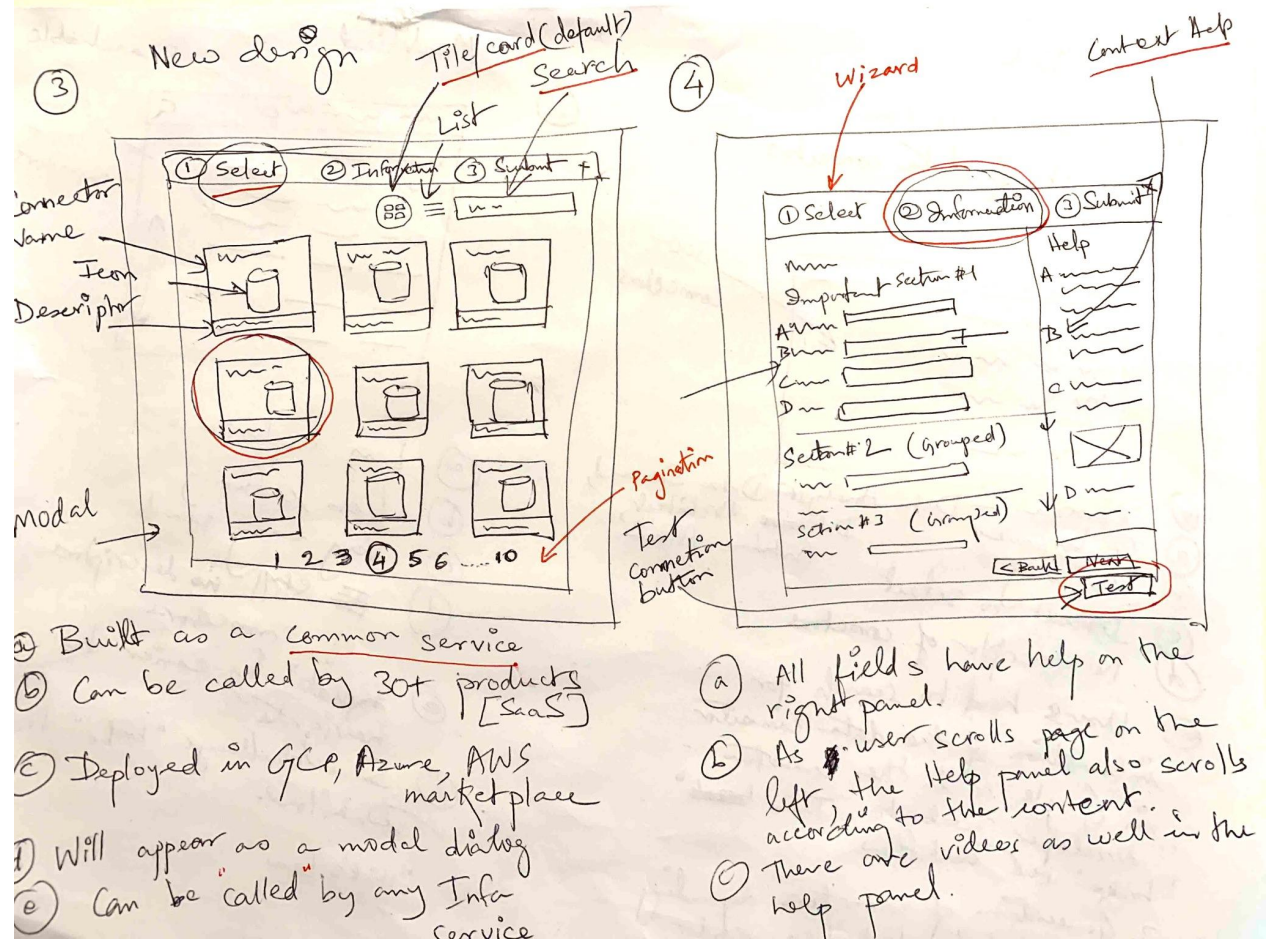 ③
New design
Tile/card (default)
Search
List
① Select ② Information ③ Submit x
Connector
Name
Icon
Descriptor
Modal
Pagination
1 2 3 ④ 5 6 ..... 10
ⓐ Built as a common service
ⓑ Can be called by 30+ products
[SaaS]
ⓒ Deployed in GCP, Azure, AWS
marketplace
ⓓ Will appear as a modal dialog
ⓔ Can be "called" by any Infa
service
④
Wizard
Context Help
① Select ② Information ③ Submit x
Important Section #1
A
B
C
D
Section #2 (Grouped)
Section #3 (Grouped)
Help
A
B
C
D
< Back Next
Test
Test
connection
button
ⓐ All fields have help on the
right panel.
ⓑ As user scrolls page on the
left, the Help panel also scrolls
according to the content.
ⓒ There are videos as well in the
help panel.